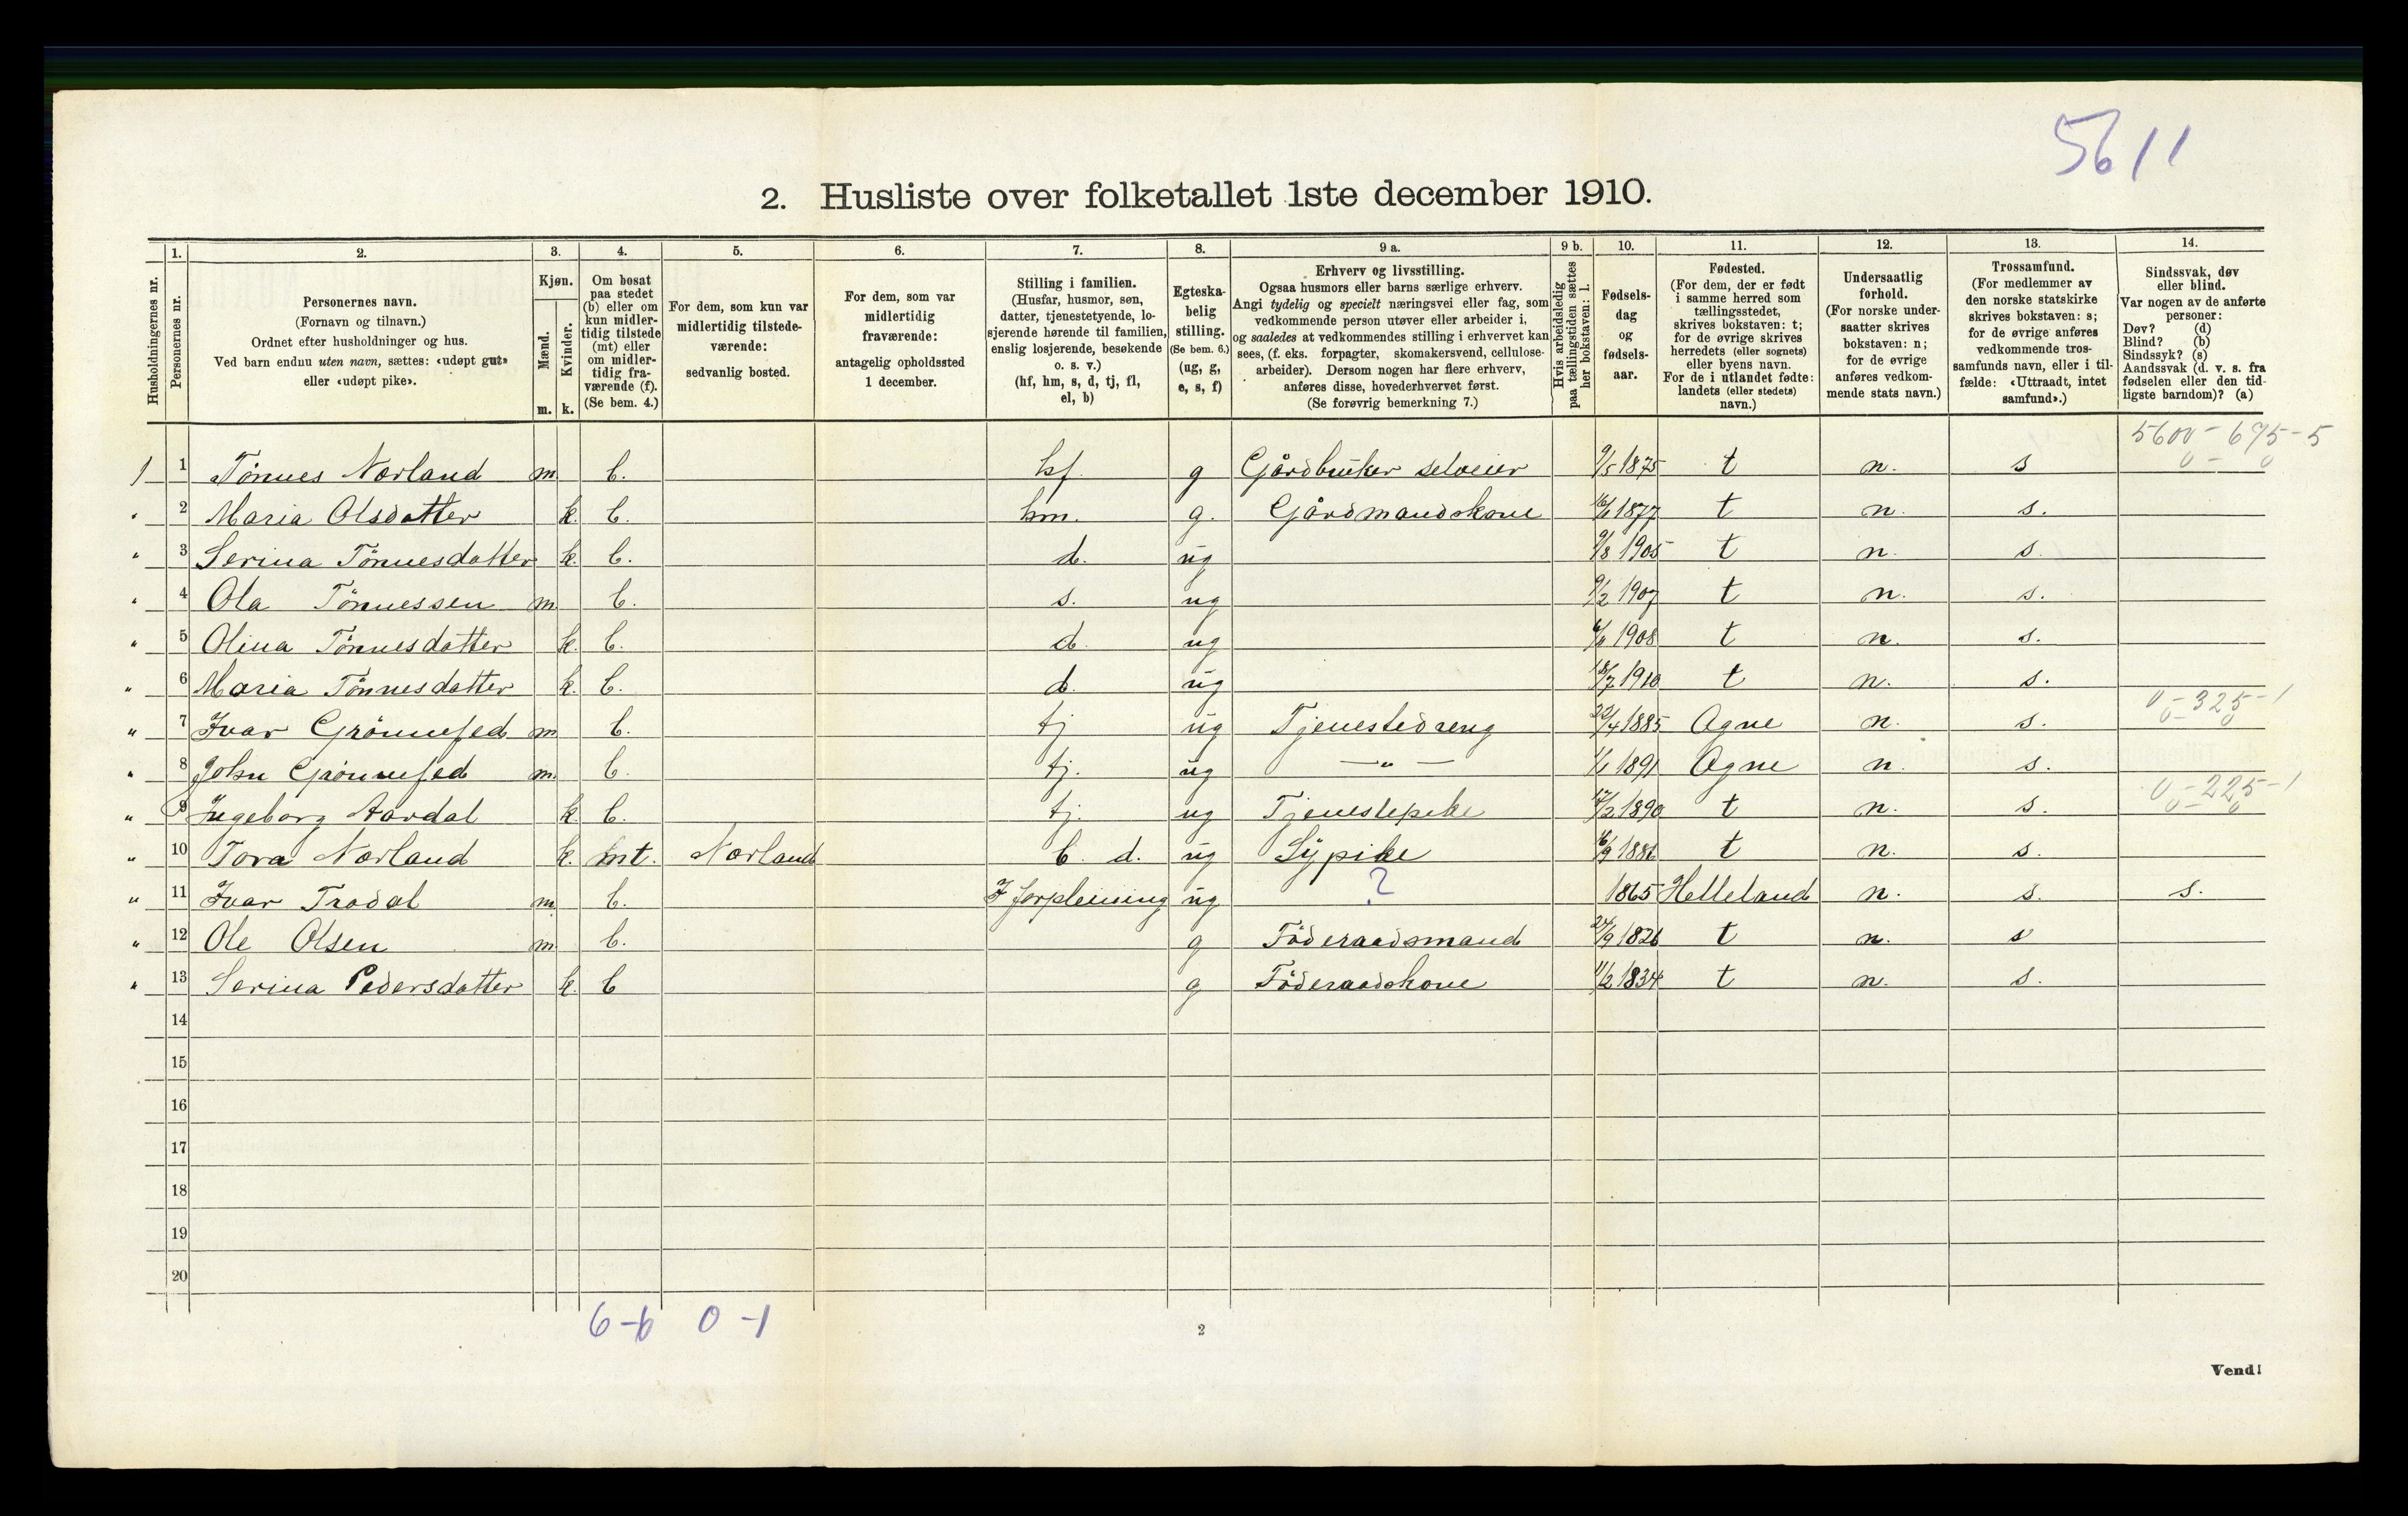 5611
2. Husliste over folketallet 1ste december 1910.
Husholdningernes nr.
1. Personernes nr.
2. Personernes navn. (Fornavn og tilnavn.) Ordnet efter husholdninger og hus. Ved barn endnu uten navn, sættes: «udøpt gut» eller «udøpt pike».
3. Kjøn. Mænd. m. Kvinder. k.
4. Om bosat paa stedet (b) eller om kun midlertidig tilstede (mt) eller om midlertidig fraværende (f). (Se bem. 4.)
5. For dem, som kun var midlertidig tilstedeværende: sedvanlig bosted.
6. For dem, som var midlertidig fraværende: antagelig opholdssted 1 december.
7. Stilling i familien. (Husfar, husmor, søn, datter, tjenestetyende, losjerende hørende til familien, enslig losjerende, besøkende o. s. v.) (hf, hm, s, d, tj, fl, el, b)
8. Egteskabelig stilling. (Se bem. 6.) (ug, g, e, s, f)
9 a. Erhverv og livsstilling. Ogsaa husmors eller barns særlige erhverv. Angi tydelig og specielt næringsvei eller fag, som vedkommende person utøver eller arbeider i, og saaledes at vedkommendes stilling i erhvervet kan sees, (f. eks. forpagter, skomakersvend, cellulosearbeider). Dersom nogen har flere erhverv, anføres disse, hovederhvervet først. (Se forøvrig bemerkning 7.)
9 b. Hvis arbeidsledig paa tællingstiden sættes her bokstaven: l.
10. Fødselsdag og fødselsaar.
11. Fødested. (For dem, der er født i samme herred som tællingsstedet, skrives bokstaven: t; for de øvrige skrives herredets (eller sognets) eller byens navn. For de i utlandet fødte: landets (eller stedets) navn.)
12. Undersaatlig forhold. (For norske undersaatter skrives bokstaven: n; for de øvrige anføres vedkommende stats navn.)
13. Trossamfund. (For medlemmer av den norske statskirke skrives bokstaven: s; for de øvrige anføres vedkommende trossamfunds navn, eller i tilfælde: «Uttraadt, intet samfund».)
14. Sindssvak, døv eller blind. Var nogen av de anførte personer: Døv? (d) Blind? (b) Sindssyk? (s) Aandssvak (d. v. s. fra fødselen eller den tidligste barndom)? (a)
5600 - 695 - 5
0 - 0
1 1 Tönnes Norland m. b. hf. g Gårdbruker selveier 9/5 1875 t n. s
" 2 Maria Olsdatter k. b. hm. g. Gårdmandskone 1877 t n. s.
" 3 Serina Tönnesdatter k. b. d. ug 9/8 1905 t n. s.
" 4 Ola Tönnessen m b. s. ug 9/2 1907 t n. s.
" 5 Olina Tönnesdatter k. b. d. ug 1908 t n. s.
" 6 Maria Tönnesdatter k. b. d. ug 18/7 1910 t n. s.
0 - 325 - 1
0 - 0
" 7 Ivar Grönnesed m b. tj ug Tjenestedreng 22/4 1885 Ogne n. s.
" 8 John Grönnesed m. b. tj. ug — " — 1/1 1891 Ogne n. s.
0 - 225 - 1
0 - 0
" 9 Ingeborg Aardal k. b. tj. ug Tjenestepike 17/2 1890 t n. s.
" 10 Tora Norland k. mt. Norland b. d. ug Sypike 1886 t n. s.
" 11 Ivar Trodal m. b. I forpleining ug ? 1865 Helleland n. s. s.
" 12 Ole Olsen m b. g Föderaadsmand 24/9 1826 t n. s
" 13 Serina Pedersdatter k. b g Föderaadskone 11/2 1834 t n. s.
14
15
16
17
18
19
20
6-6 0-1
2
Vend!